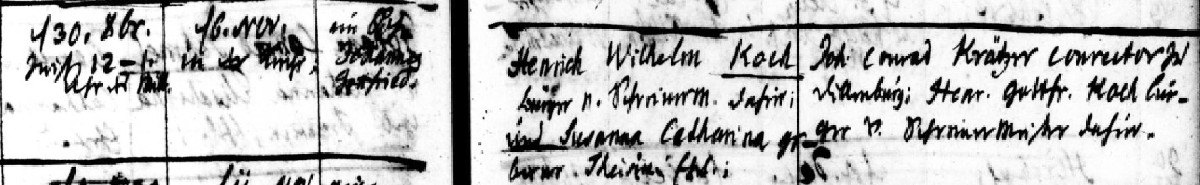 d 30. 8br.
Zwisch 12-1
Uhr
16. Nov.
in der Kirche,
ein
Johannes
Gottfried.
Henrich Wilhelm Koch
bürger u. Schreinerm. dahier;
und Susanna Catharina ge-
borne
Joh Conrad Krätzer Conrector zu
Dillenburg; Henr. Gottfr. Koch bür-
ger u. Schreiner Meister dahier.